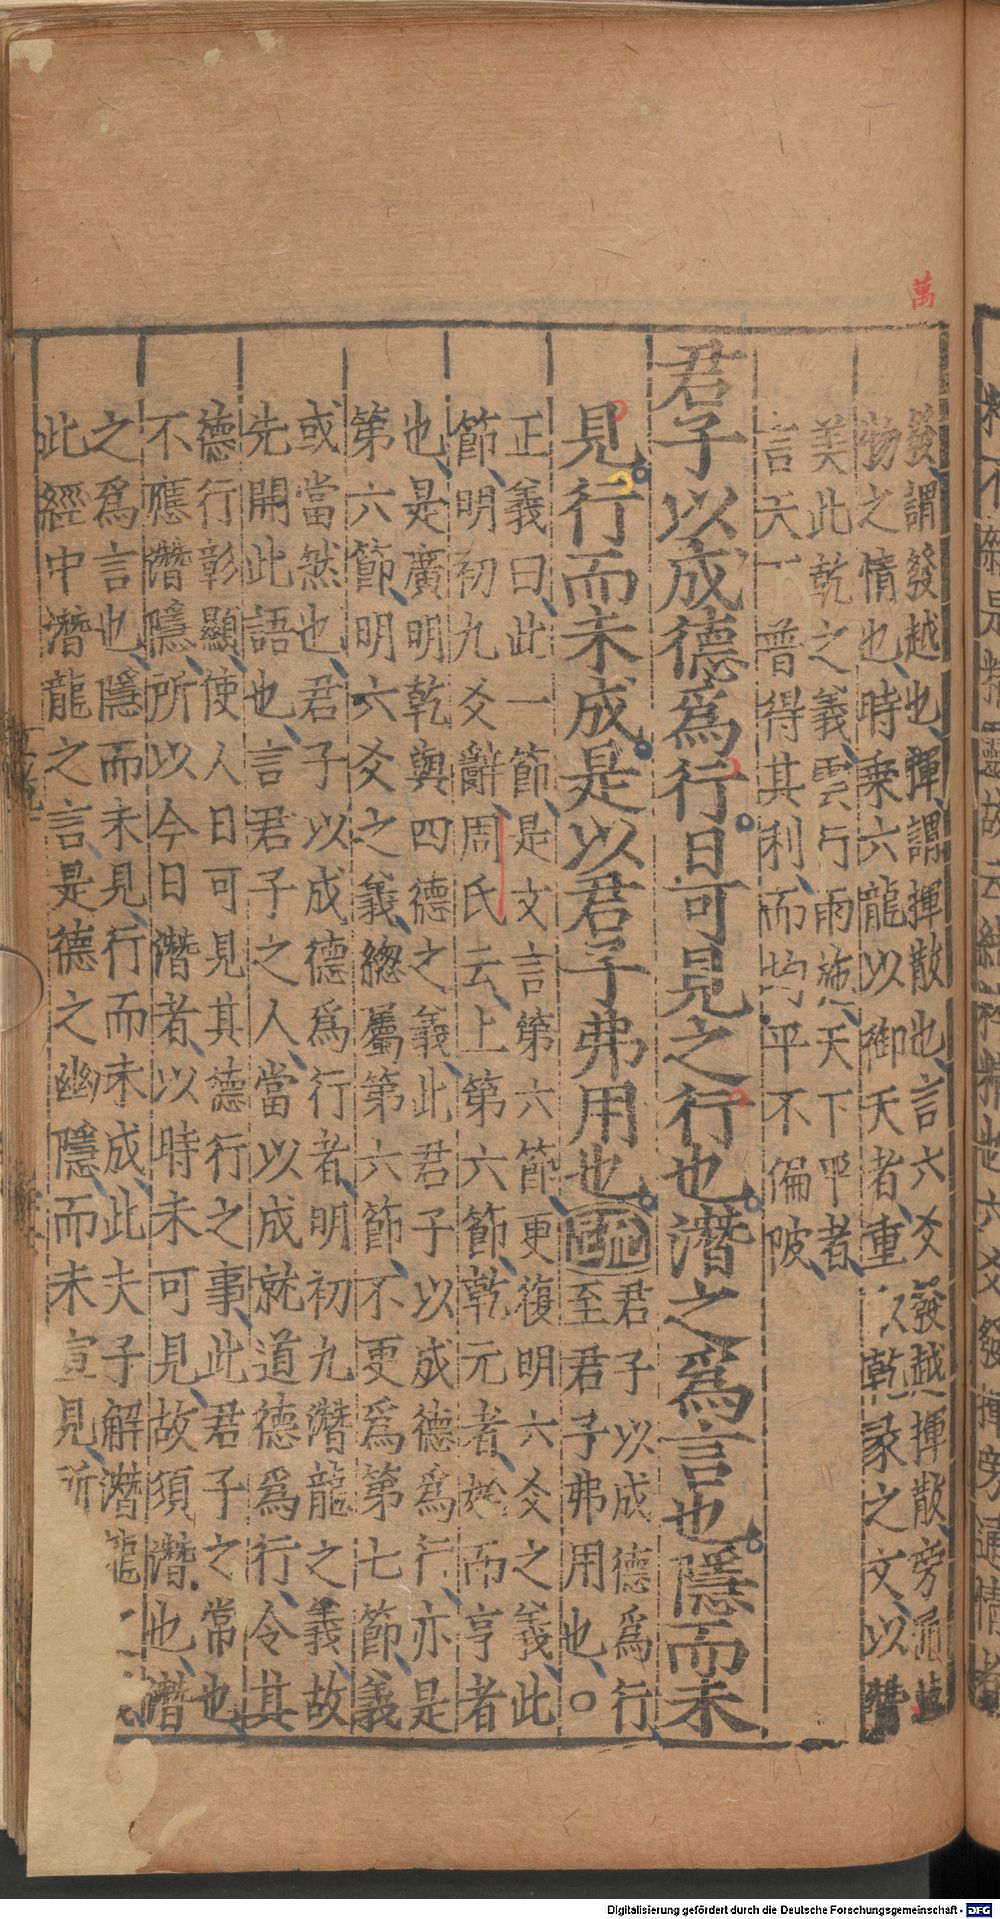 萬
發謂發越也揮謂揮散也言六爻發越揮散旁通萬
物之情也時乗六龍以御天者重以乾彖之文以贊
美此乾之義雲行雨施天下平者
言天下普得其利而均平不偏陂
君子以成德爲行日可見之行也潛之爲言也隱而未
見行而未成是以君子弗用也
疏
君子以成德爲行
至君子弗用也○
正義曰此一節是文言第六節更復明六爻之義此
節明初九爻辭周氏云上第六節乾元者始而亨者
也是廣明乾與四德之義此君子以成德爲行亦是
第六節明六爻之義總屬第六節不更爲第七節義
或當然也君子以成德爲行者明初九潛龍之義故
先開此語也言君子之人當以成就道德爲行令其
德行彰顯使人日可見其德行之事此君子之常也
不應潛隱所以今日潛者以時未可見故須潛也潛
之爲言也隱而未見行而未成此夫子解潛龍
此經中潛龍之言是德之幽隱而未宣見所
Digitalisierung gefördert durch die Deutsche Forschungsgemeinschaft - DFG